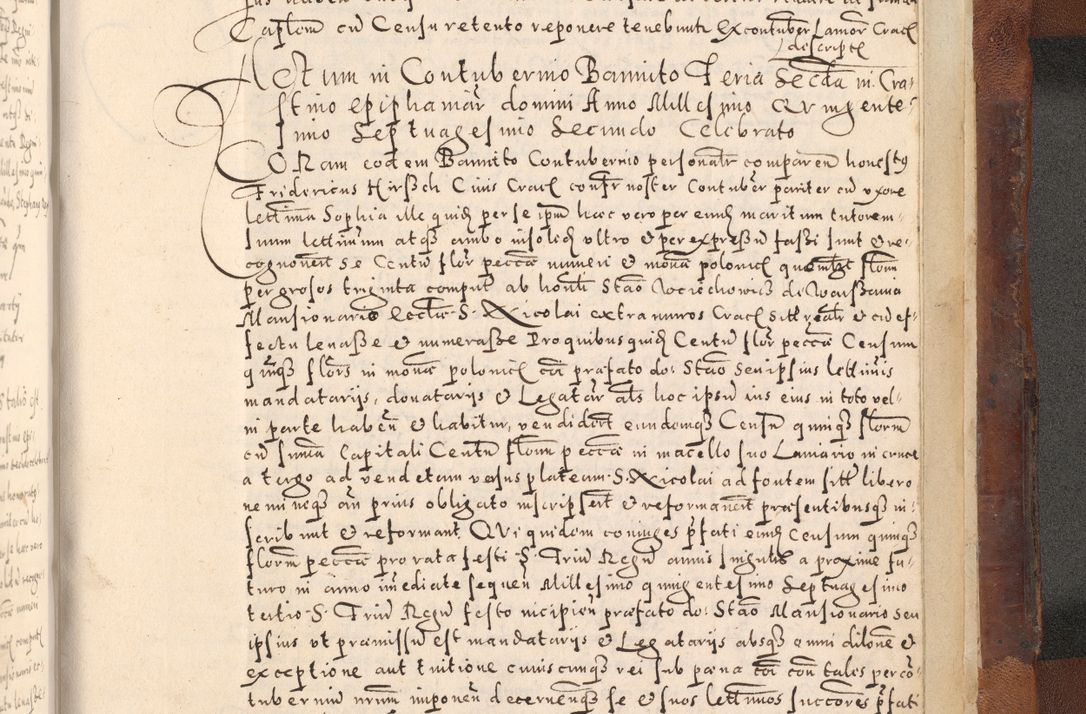 Captm cū Censu retento reponere tenebunt Ex contuber Lanior Crac
descript
Actum in Contubernio Bannito Feria Secda in Cra
stino Epiphaniar domini Anno Millesimo Quingente
simo Septuagesimo Secundo Celebrato
Coram eodem Bannito Contubernio personalr comparen honestg
Fridericus Hirsch Ciuis Crac confr noster Contuber pariter cū vxore
lettima Sophia ille quid per se ipm haec vero per eund maritum tutorem
suum lettimum atqz ambo insolid vltro et per expressū fassi sunt et re
cognouert se Centū flor pecca numeri et mona polonic quemlt florm
per grosos triginta comput ab honli Stao Wociechowicz de Warssauia
Mansionario Eccliae S. Nicolai extra muros Crac sitt realr et cū ef
fectu leuasse et numerasse Pro quibus quid Centū flor pecca Censum
quinqz flors in mona polonic coi praefato do Stao seu ipsius lettimis
mandatarijs, donatarijs et Legatar als hoc ipsū ius eius in toto vel
in parte haben et habitur, vendidert eundemqz Censū quinqz florm
cū suma Capitali Centū florm pecca in macello suo Laniario in cruce
a tergo ad vendetam versus plateam S. Nicolai ad fontem sitt libero
nemini neqz an prius obligato inscripsert et reformauert praesentibusqz in
scribunt et reformant Qui quidem coniuges pfati eund Censum quinqz
florm pecca pro rata festi S. Triū Regū annis singulis a proxime fu
turo in anno imediate sequen Millesimo quingentesimo Septuagesimo
tertio S. Triū Regū festo incipien praefato do Stao Mansionario seu
ipsius vt praemissū est mandatarijs et Legatarijs absqz omni dilone et
exceptione aut tuitione cuiuscunqz rei sub paena toi con tales per co
tuberniū nrum imponen decernenqz se et suos lettimos succores pfati